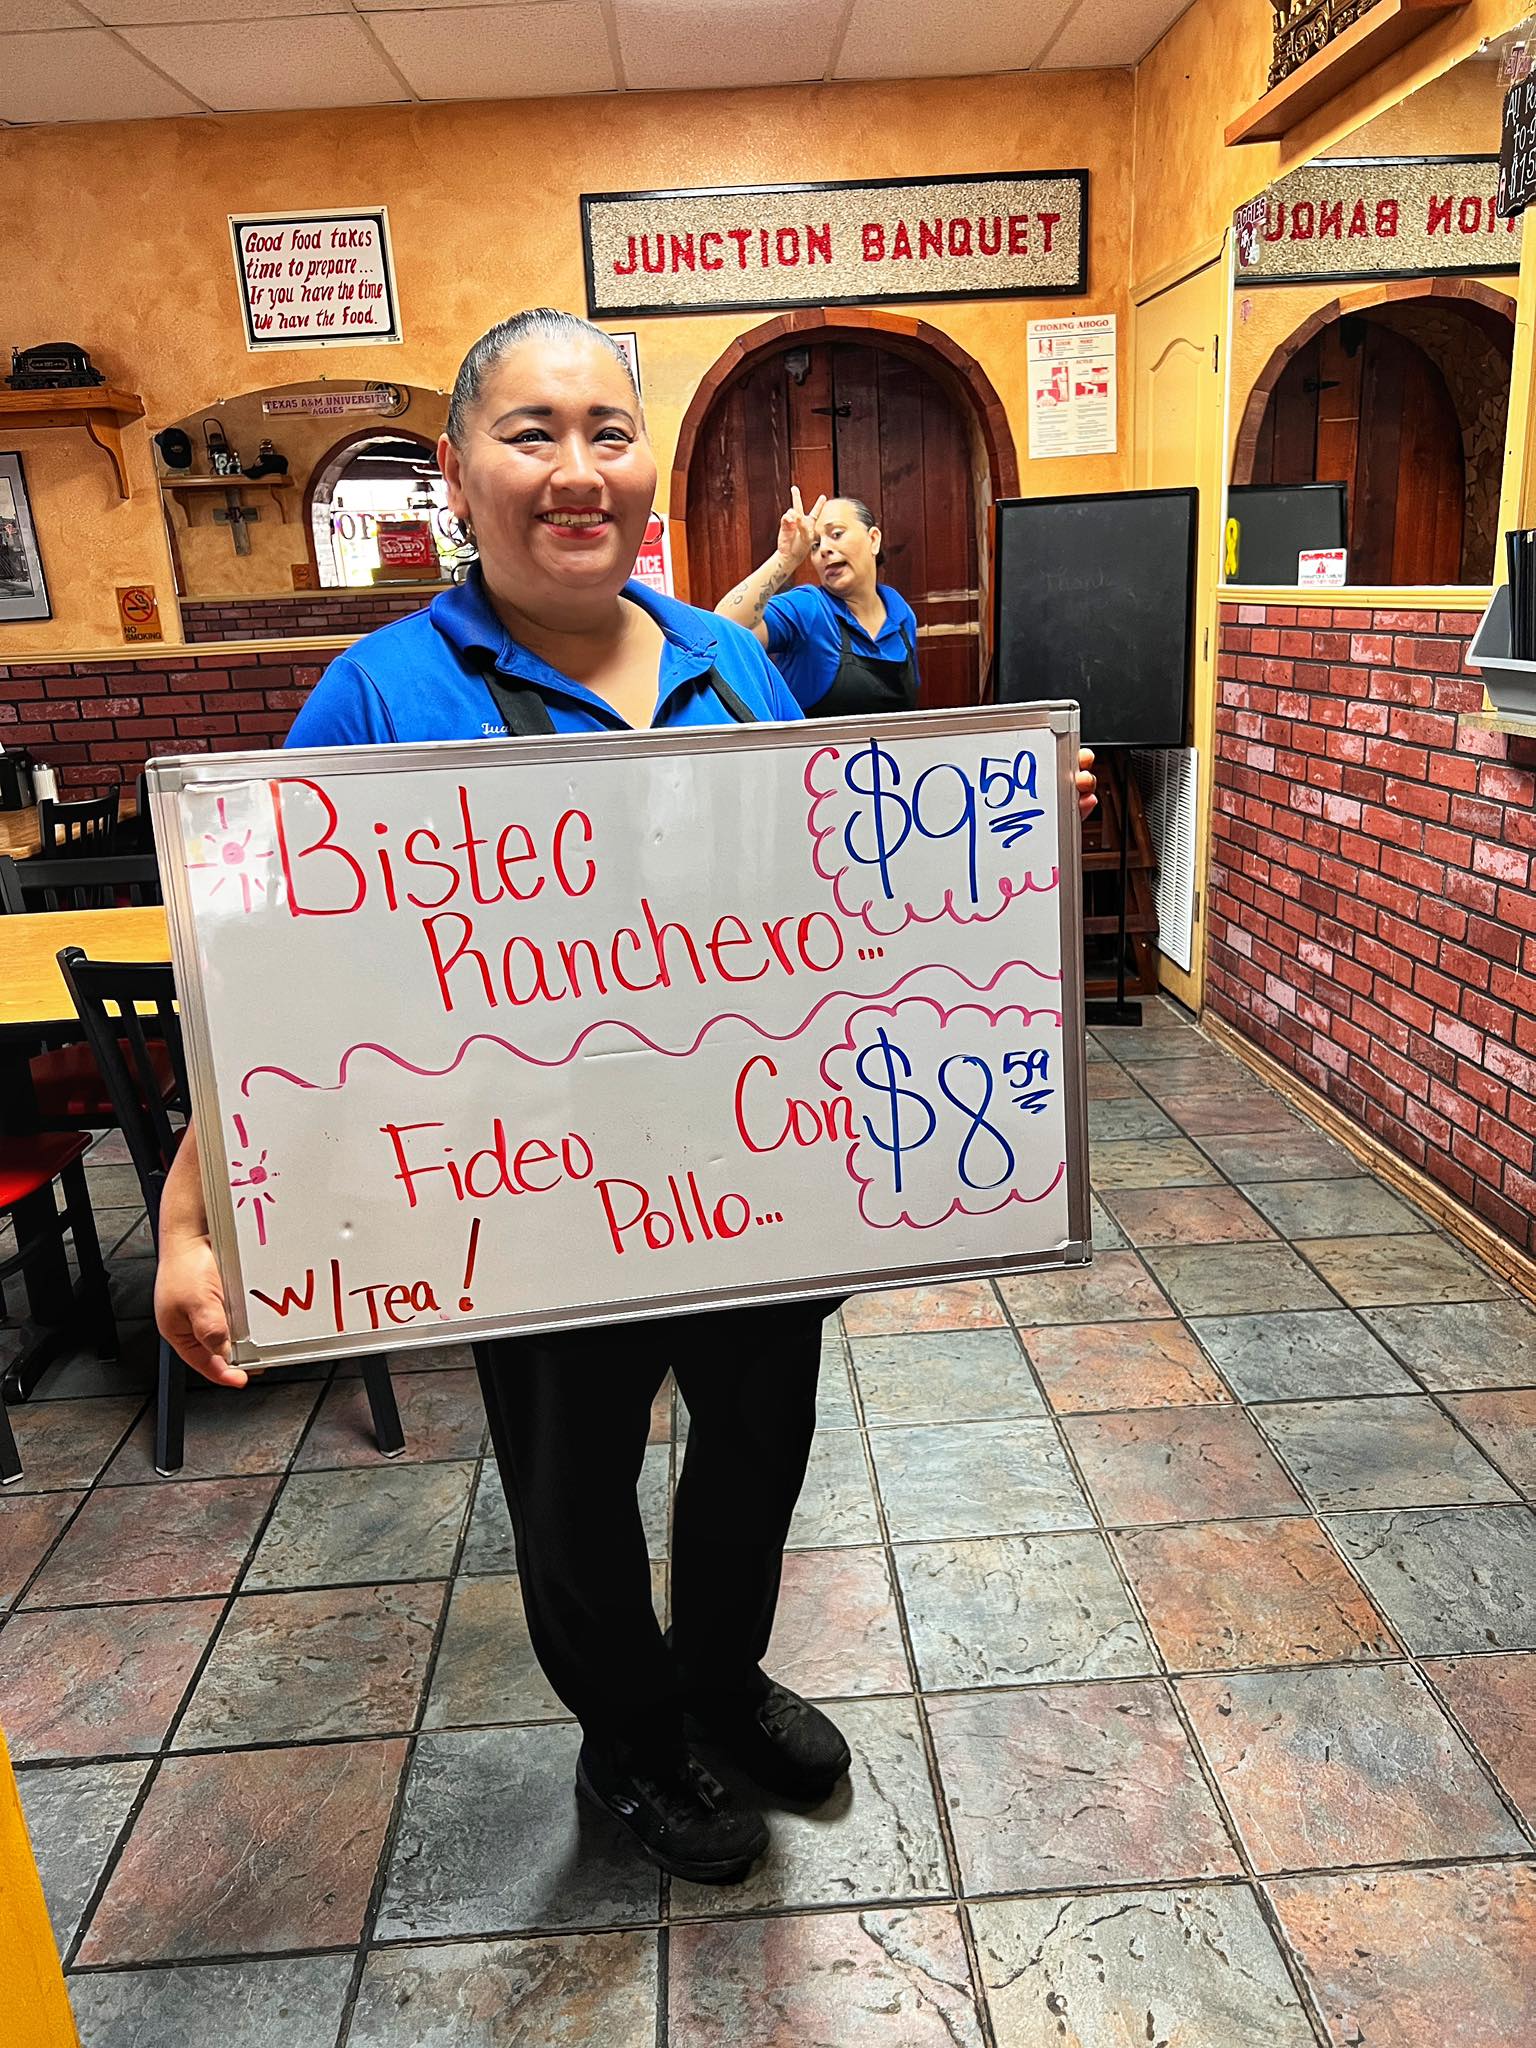 Good Food takes
time to prepare...
If you have the time
We have the Food.
JUNCTION BANQUET
CHOKING AHOGO
TEXAS A&M UNIVERSITY
AGGIES
AGGIES
OPEN
NO
SMOKING
Bistec
Ranchero...
$9 59
Fideo Con
Pollo...
$8 59
w/Tea!